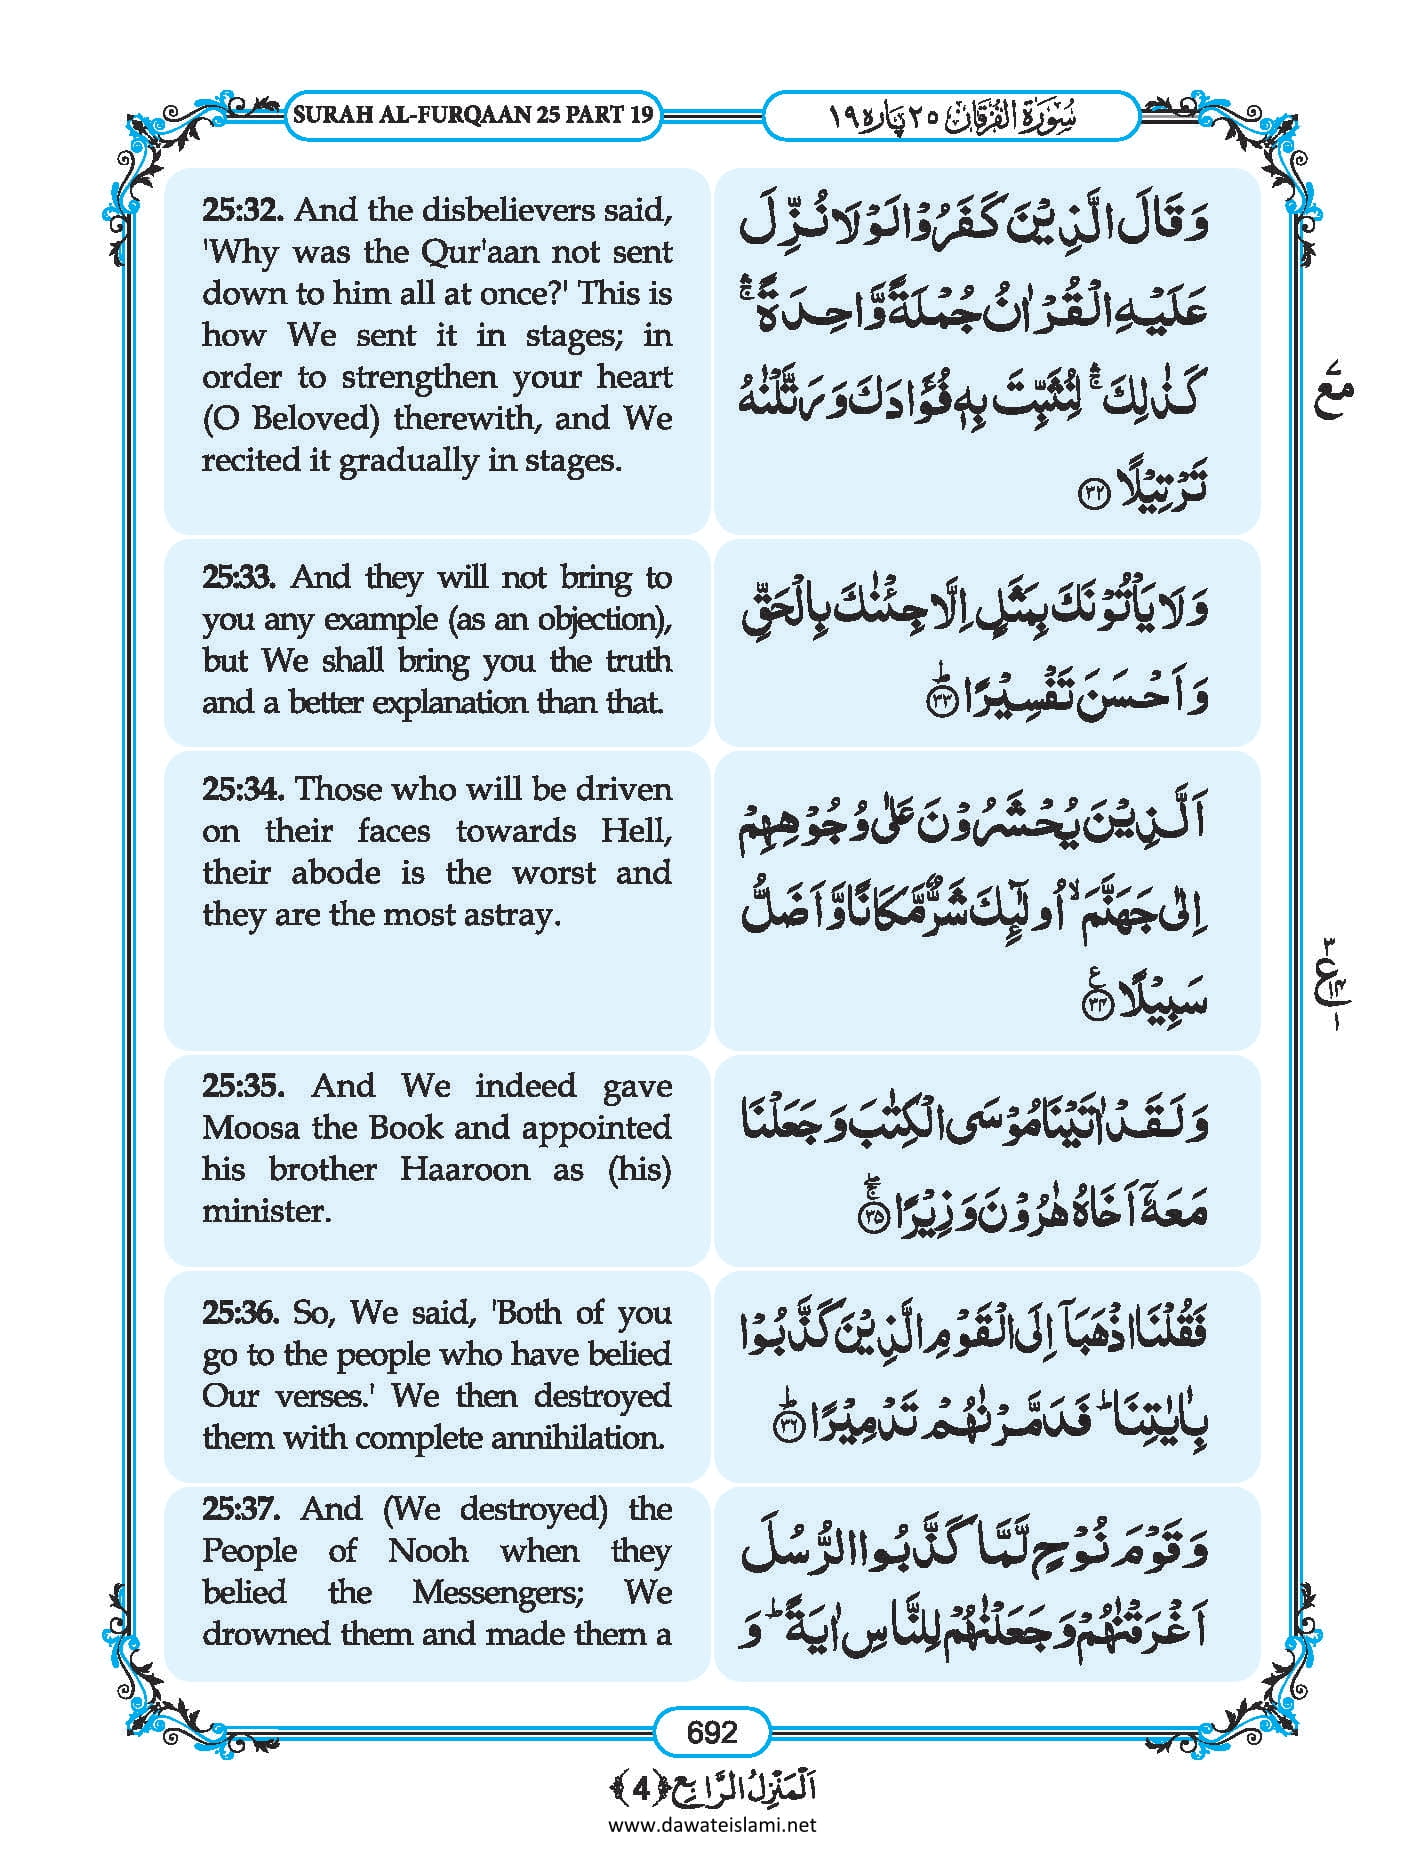 SURAH AL-FURQAAN 25 PART 19
سُوْرَةُ الْفُرْقَانْ ٢٥ پَارہ ١٩
25:32. And the disbelievers said,
'Why was the Qur'aan not sent
down to him all at once?' This is
how We sent it in stages; in
order to strengthen your heart
(O Beloved) therewith, and We
recited it gradually in stages.
وَقَالَ الَّذِيْنَ كَفَرُوْا لَوْلَا نُزِّلَ
عَلَيْهِ الْقُرْاٰنُ جُمْلَةً وَّاحِدَةً ۚۛ
كَذٰلِكَ ۚۛ لِنُثَبِّتَ بِهٖ فُؤَادَكَ وَرَتَّلْنٰهُ
تَرْتِيْلًا ﴿٣٢﴾
مع
25:33. And they will not bring to
you any example (as an objection),
but We shall bring you the truth
and a better explanation than that.
وَلَا يَاْتُوْنَكَ بِمَثَلٍ اِلَّا جِئْنٰكَ بِالْحَقِّ
وَاَحْسَنَ تَفْسِيْرًا ﴿٣٣﴾ؕ
25:34. Those who will be driven
on their faces towards Hell,
their abode is the worst and
they are the most astray.
اَلَّذِيْنَ يُحْشَرُوْنَ عَلٰى وُجُوْهِهِمْ
اِلٰى جَهَنَّمَ ۙ اُولٰٓئِكَ شَرٌّ مَّكَانًا وَّاَضَلُّ
سَبِيْلًا ﴿٣٤﴾ع
٣
ع ١٤
١
25:35. And We indeed gave
Moosa the Book and appointed
his brother Haaroon as (his)
minister.
وَلَقَدْ اٰتَيْنَا مُوْسَى الْكِتٰبَ وَجَعَلْنَا
مَعَهٗۤ اَخَاهُ هٰرُوْنَ وَزِيْرًا ﴿٣٥﴾ۚۖ
25:36. So, We said, 'Both of you
go to the people who have belied
Our verses.' We then destroyed
them with complete annihilation.
فَقُلْنَا اذْهَبَاۤ اِلَى الْقَوْمِ الَّذِيْنَ كَذَّبُوْا
بِاٰيٰتِنَا ؕ فَدَمَّرْنٰهُمْ تَدْمِيْرًا ﴿٣٦﴾ؕ
25:37. And (We destroyed) the
People of Nooh when they
belied the Messengers; We
drowned them and made them a
وَقَوْمَ نُوْحٍ لَّمَّا كَذَّبُوا الرُّسُلَ
اَغْرَقْنٰهُمْ وَجَعَلْنٰهُمْ لِلنَّاسِ اٰيَةً ؕ وَ
692
اَلْمَنْزِلُ الرَّابِع ﴿4﴾
www.dawateislami.net